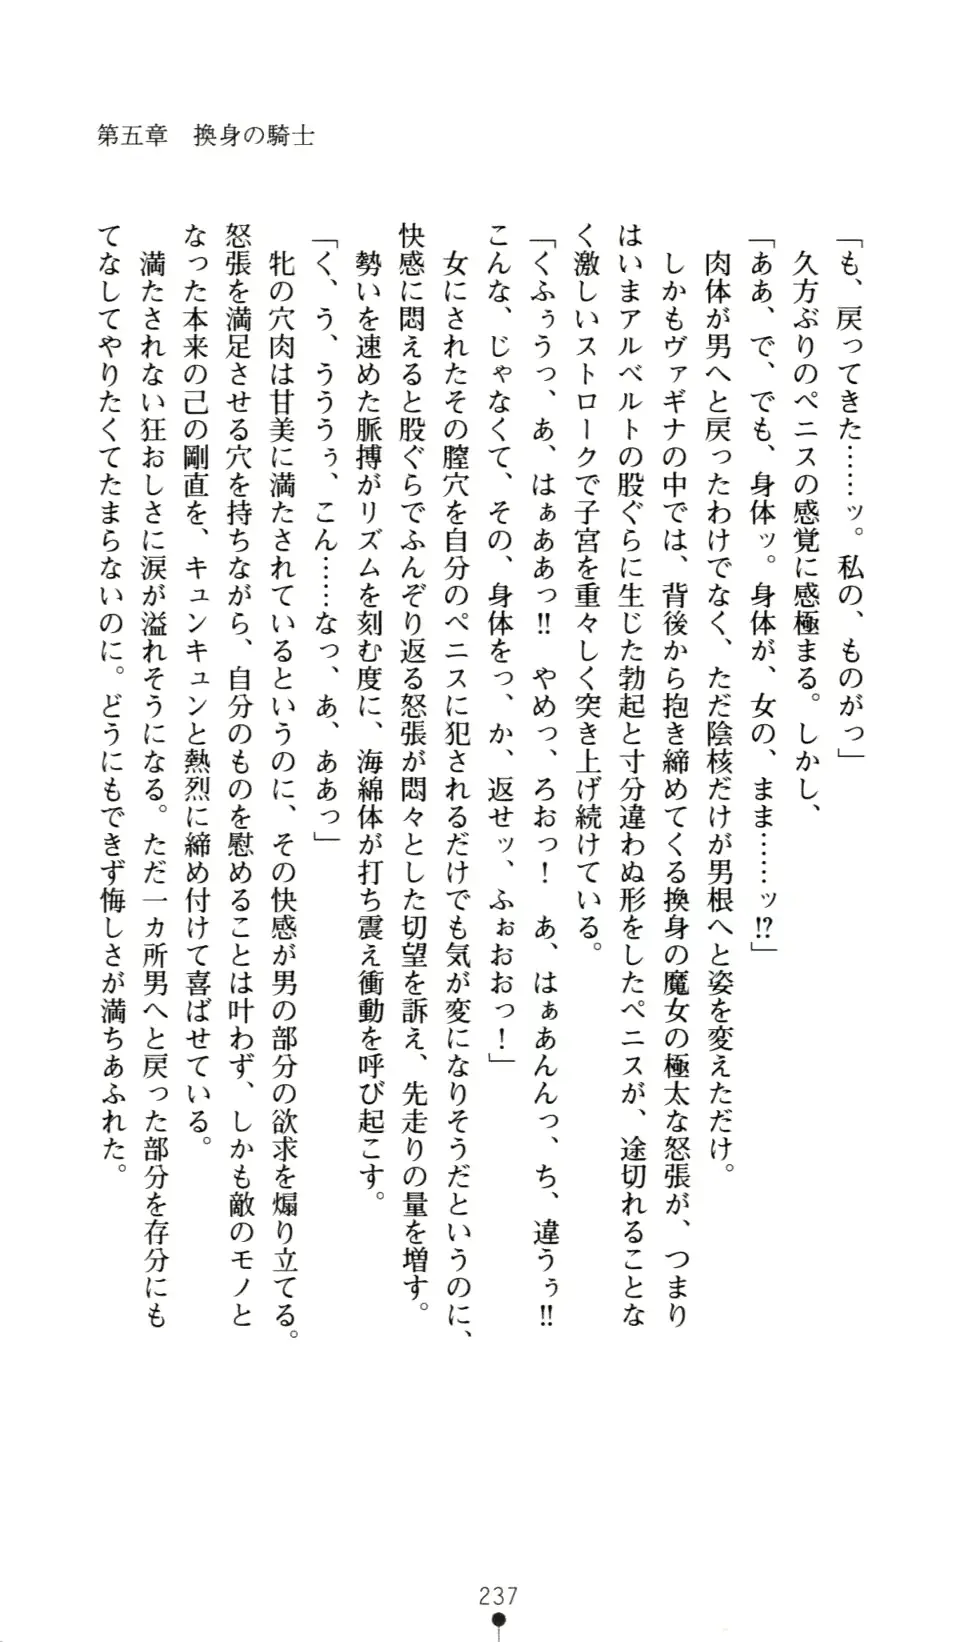 第五章　換身の騎士
「も、戻ってきた……ッ。私の、ものがっ」
久方ぶりのペニスの感覚に感極まる。しかし、
「ああ、で、でも、身体ッ。身体が、女の、まま……ッ!?」
肉体が男へと戻ったわけでなく、ただ陰核だけが男根へと姿を変えただけ。
しかもヴァギナの中では、背後から抱き締めてくる換身の魔女の極太な怒張が、つまり
はいまアルベルトの股ぐらに生じた勃起と寸分違わぬ形をしたペニスが、途切れることな
く激しいストロークで子宮を重々しく突き上げ続けている。
「くふぅうっ、あ、はぁああっ!!　やめっ、ろおっ！　あ、はぁあんんっ、ち、違うぅ!!
こんな、じゃなくて、その、身体をっ、か、返せッ、ふぉおおおっ！」
女にされたその膣穴を自分のペニスに犯されるだけでも気が変になりそうだというのに、
快感に悶えると股ぐらでふんぞり返る怒張が悶々とした切望を訴え、先走りの量を増す。
勢いを速めた脈搏がリズムを刻む度に、海綿体が打ち震え衝動を呼び起こす。
「く、う、うううぅ、こん……なっ、あ、ああっ」
牝の穴肉は甘美に満たされているというのに、その快感が男の部分の欲求を煽り立てる。
怒張を満足させる穴を持ちながら、自分のものを慰めることは叶わず、しかも敵のモノと
なった本来の己の剛直を、キュンキュンと熱烈に締め付けて喜ばせている。
満たされない狂おしさに涙が溢れそうになる。ただ一カ所男へと戻った部分を存分にも
てなしてやりたくてたまらないのに。どうにもできず悔しさが満ちあふれた。
237